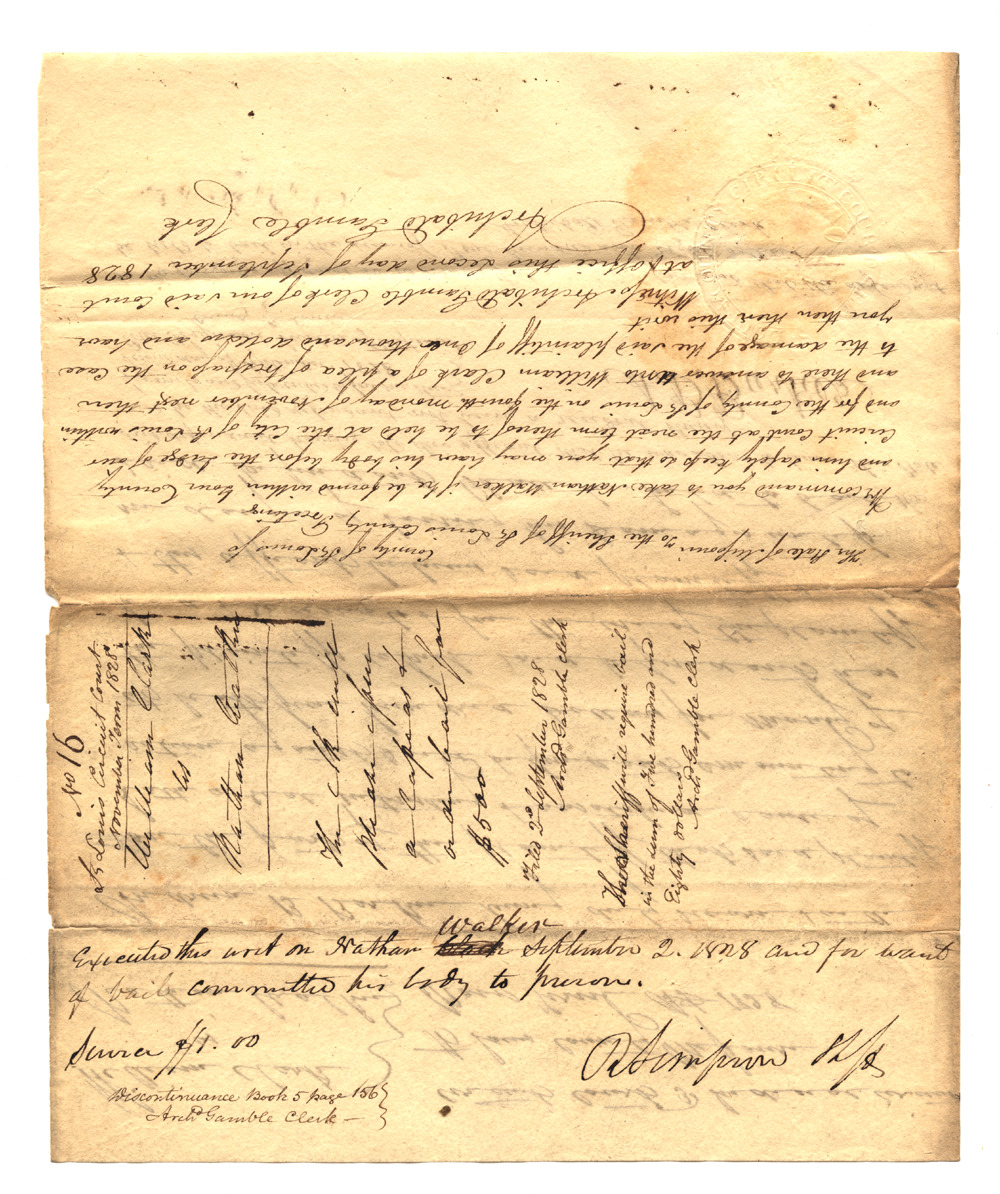 The State of Missouri
County of St Louis
To the Sheriff of St Louis County Greeting
We command you to take Nathan Walker if he be found within your County
and him safely keep so that you may have his body before the Judge of our
Circuit Court at the next term thereof to be held at the City of St Louis within
and for the County of St Louis on the fourth monday of November next then
and there to answer unto William Clark of a plea of trespass on the Case
to the damage of the said plaintiff of One thousand dollars and have
you then there this writ
Witness Archibald Gamble Clerk of our said Court
at office this second day of September 1828
Archibald Gamble Clerk
No 16
St Louis Circuit Court
November Term 1828
William Clark
vs
Nathan Walker
The Clk will
please issue
a capias &
order bail for
$500
Filed 2d September 1828
Archd Gamble clerk
The Sheriff will require bail
in the sum of Five hundred and
Eighty dollars
Archd Gamble Clerk
Walker
Executed this writ on Nathan September 2. 1828 and for want
of bail committed his body to prison.
Service $1.00
R Simpson Shff
Discontinuance Book 5 page 156
Archd Gamble Clerk